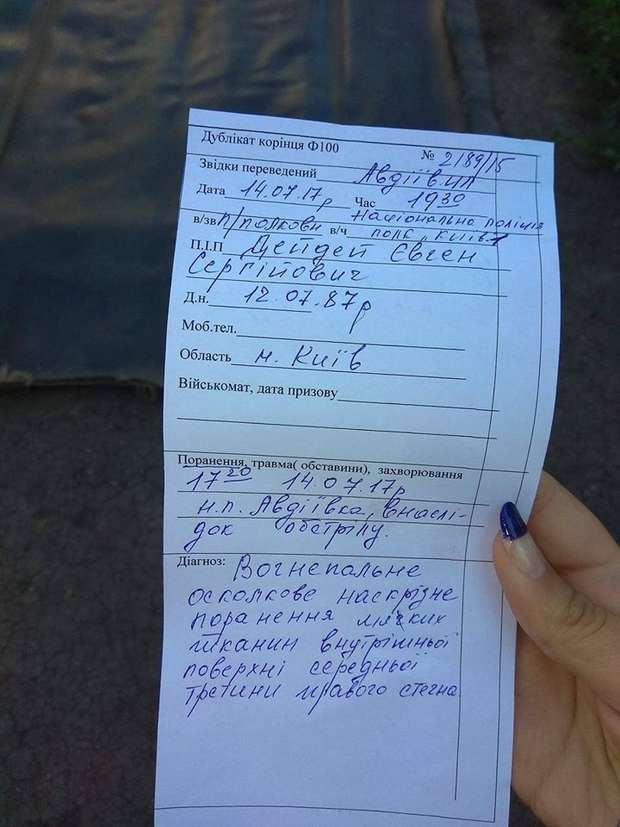 Дублікат корінця Ф100
№ 2189/15
Звідки переведений Авдіїв.ЦЛ
Дата 14.07.17р Час 19³⁰
в/зв п/полковн в/ч Національна поліція
полк, київ
П.І.П Дейдей Євген
Сергійович
Д.н. 12.07.87р
Моб.тел.
Область м. Київ
Військомат, дата призову
Поранення, травма( обставини), захворювання
17²⁰ 14.07.17р
н.п. Авдіївка, внаслі-
док обстрілу.
Діагноз: Вогнепальне
осколкове наскрізне
поранення мягких
тканин внутрішньої
поверхні середньої
третини правого стегна